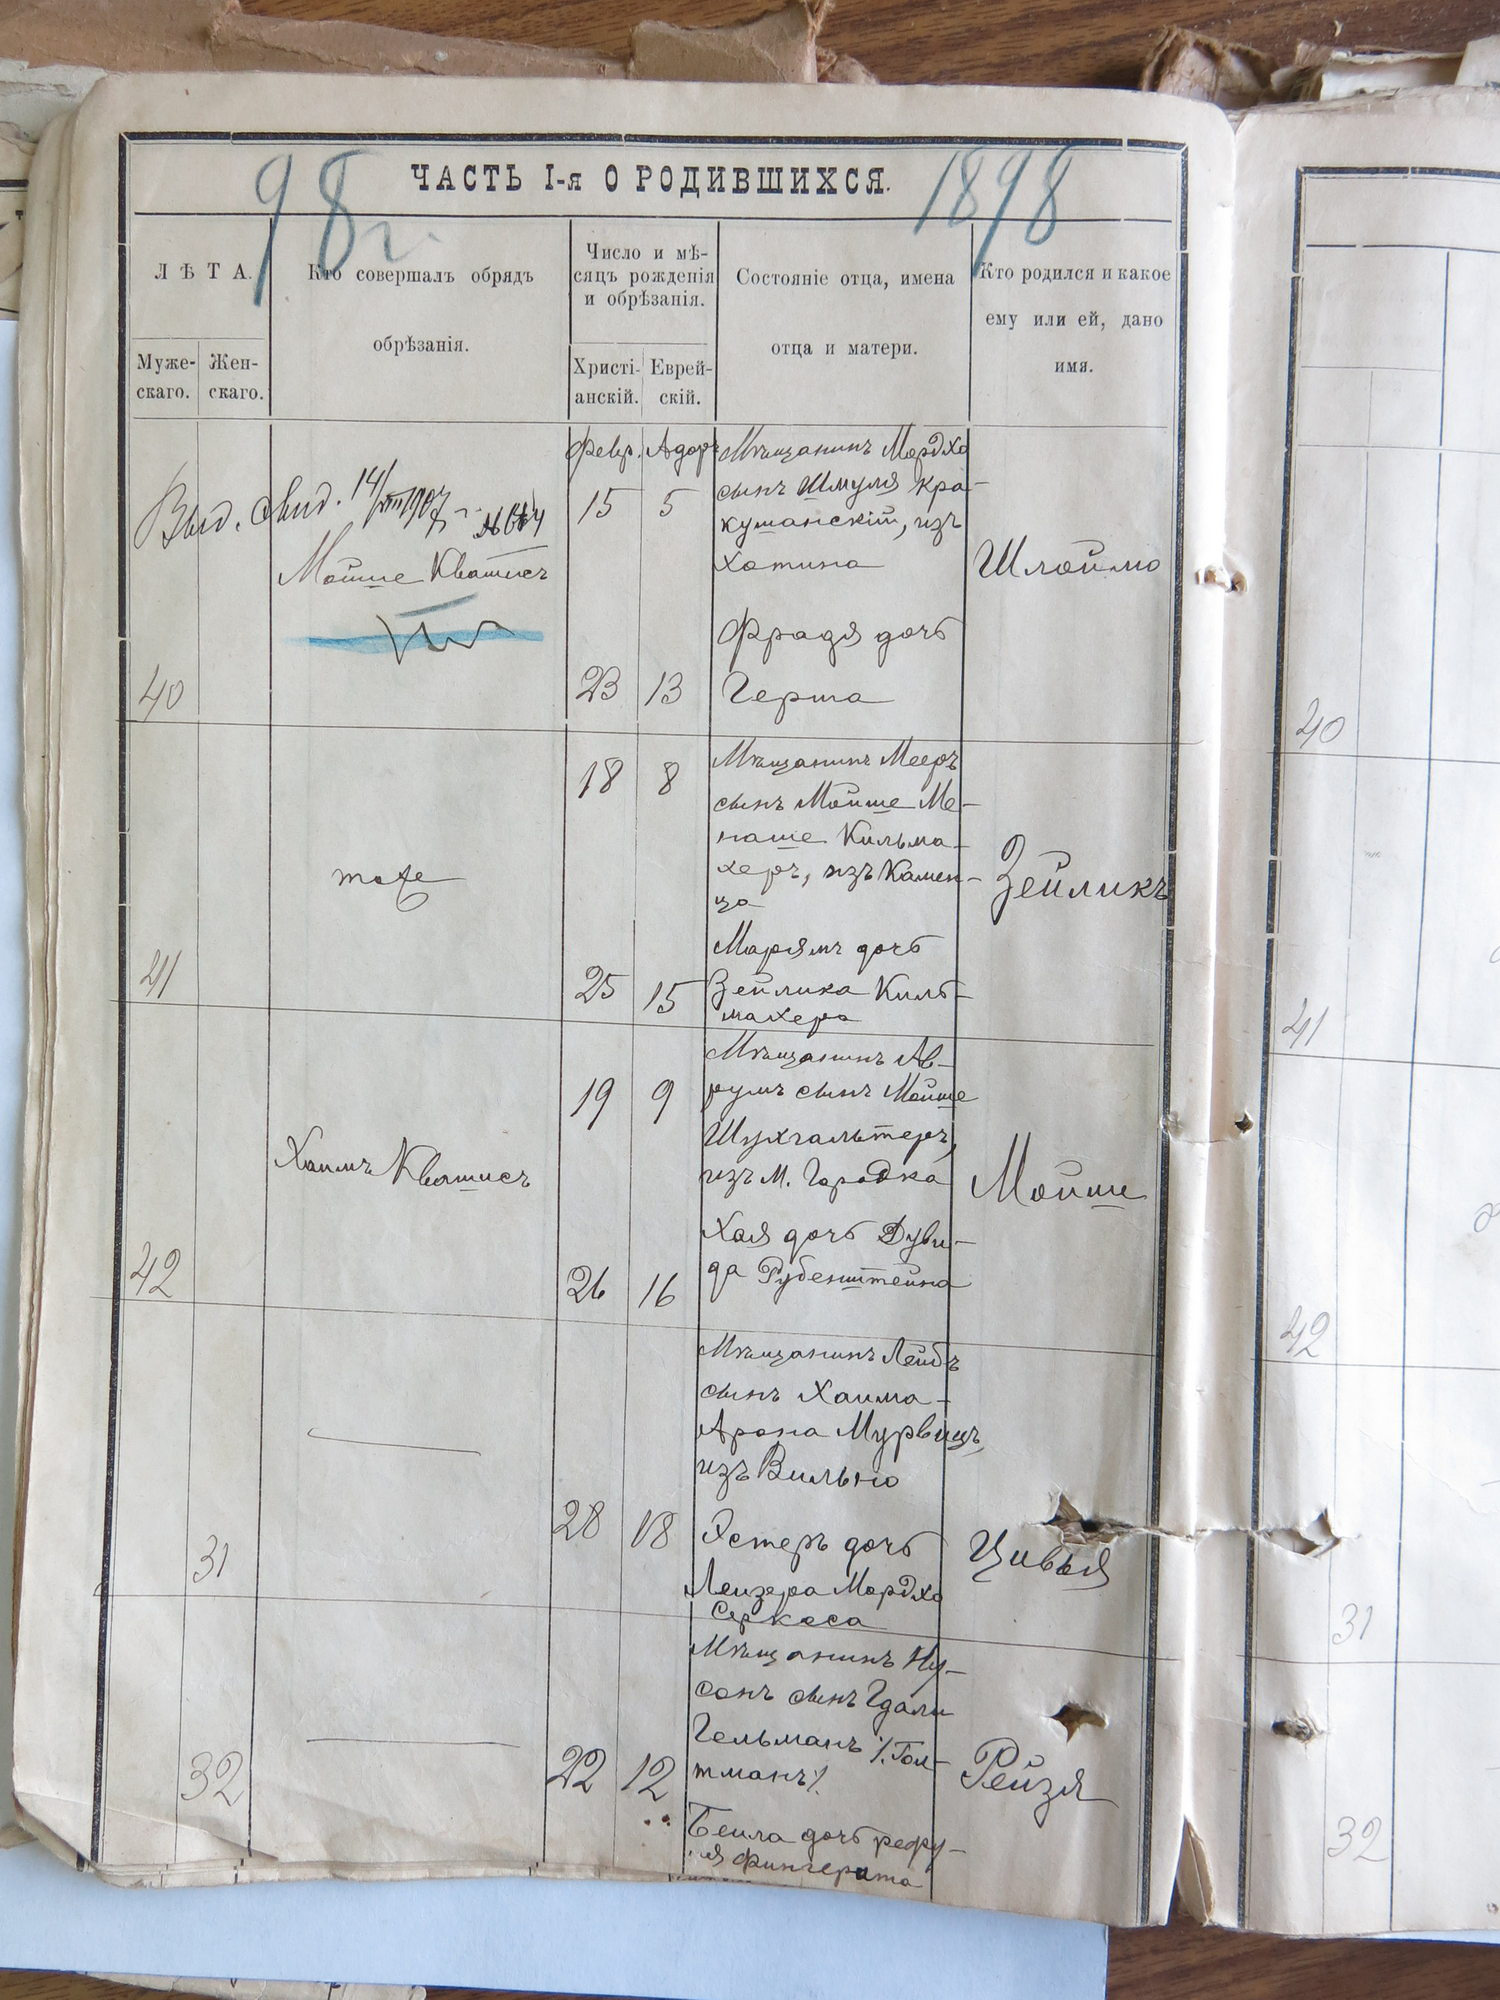 98 г.
1898
ЧАСТЬ I-я О РОДИВШИХСЯ.
ЛѢТА.
Муже-
скаго.
Жен-
скаго.
Кто совершалъ обрядъ
обрѣзанія.
Число и мѣ-
сяцъ рожденія
и обрѣзанія.
Христі-
анскій.
Еврей-
скій.
Состояніе отца, имена
отца и матери.
Кто родился и какое
ему или ей, дано
имя.
Выд. свид. 14/VIII 1907
Мойше Квотисъ
40
Февр. Адоръ
15 5
23 13
Мѣщанинъ Мордхо
сынъ Шмуля Кра-
кушанскій, изъ
Хотина
Фрадя дочь
Герша
Шлоймо
41
тоже
18 8
25 15
Мѣщанинъ Мееръ
сынъ Мойше Ме-
наше Кильма-
херъ, изъ Камен-
ца
Марямъ дочь
Зейлика Киль-
махера
Зейликъ
42
Хаимъ Квотисъ
19 9
26 16
Мѣщанинъ Ав-
румъ сынъ Мойше
Шухгальтеръ,
изъ м. Городка
Хая дочь Дуви-
да Рубенштейна
Мойше
31
28 18
Мѣщанинъ Лейбъ
сынъ Хаима-
Арона Мурвицъ,
изъ Вильно
Эстеръ дочь
Лейзера Мордхо
Серкеса
Цивья
32
22 12
Мѣщанинъ Ну-
сонъ сынъ Гдали
Гельманъ /. Гол-
тманъ/.
Бейла дочь Рефу-
ля Фингерита
Рейзя
40
41
42
31
32